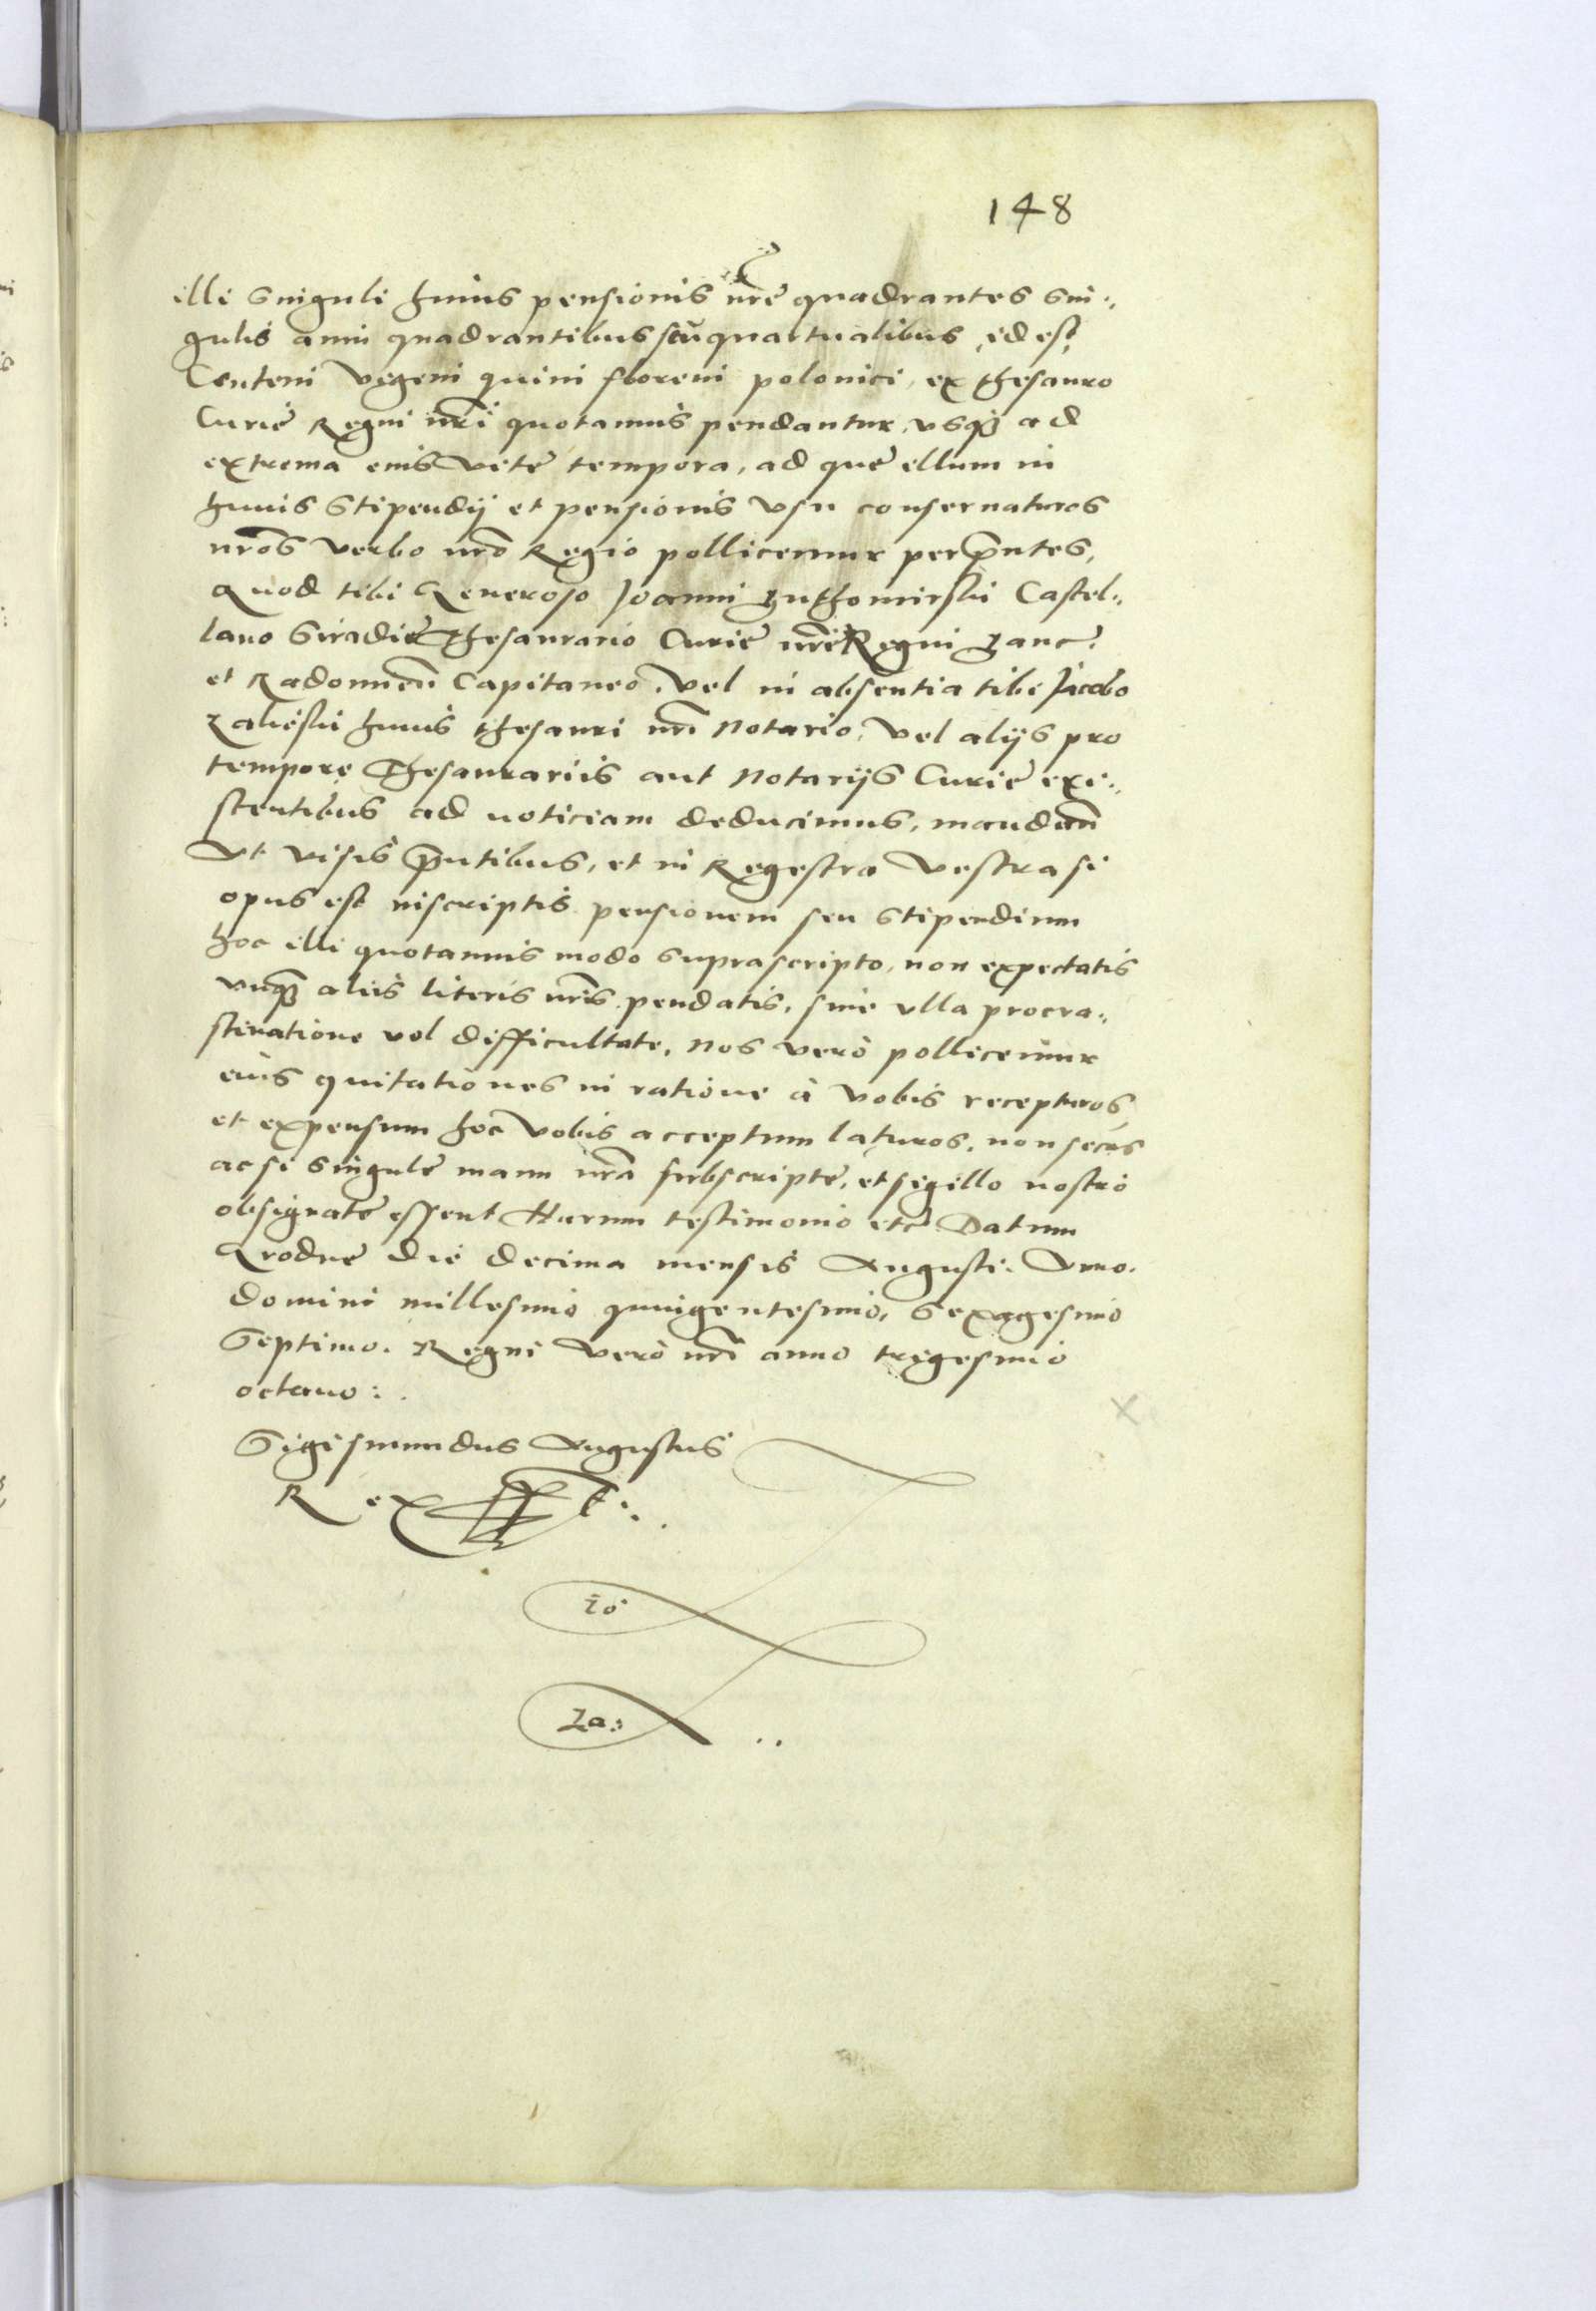 148
illi singuli huius pensionis nrę quadrantes sin:,
gulis anni quadrantibus seu quartualibus, id est,
Centeni vigeni quini floreni polonici, ex thesauro
Curię Regni nri quotannis pendantur, vsq3 ad
extrema eius vitę tempora, ad quę illum in
huius stipendij et pensionis vsu conseruaturos
nros verbo nro Regio pollicemur per pntes,
Quod tibi Generoso Joanni Luthomirski Castel:,
lano Siradię Thesaurario Curię nrę Regni Lanc:
et Radomien Capitaneo, vel in absentia tibi Jacobo
Zalieski huius thesauri nri Notario, vel alijs pro
tempore Thesaurariis aut Notarijs Curię exi:,
stentibus ad noticiam deducimus, mandan
Vt visis pntibus, et in Regestra vestra si
opus est inscriptis pensionem seu stipendium
hoc illi quotannis modo suprascripto, non expectatis
vnq3 aliis literis nris pendatis, sine vlla procra:,
stinatione vel difficultate, nos verò pollicemur
eius quitationes in ratione à vobis recepturos,
et expensum hoc vobis acceptum laturos, non secus
ac si singulę manu nra subscriptę, et sigillo nostro
obsignatę essent Harum testimonio etc Datum
Grodnę die decima mensis Augusti. Anno.
domini millesimo quingentesimo, sexagesimo
Septimo. Regni verò nri anno trigesimo
octauo:.
Sigismundus Augustus
Rex
Io
Za: